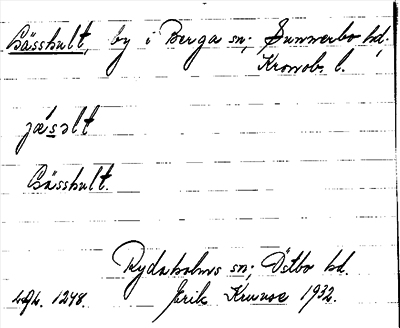 Gässhult, by i Berga sn; Sunnerbo hd;
Kronobs l.
jásəlt
Gässhult.
Rydaholms sn; Östbo hd.
Erik Kruuse 1932.